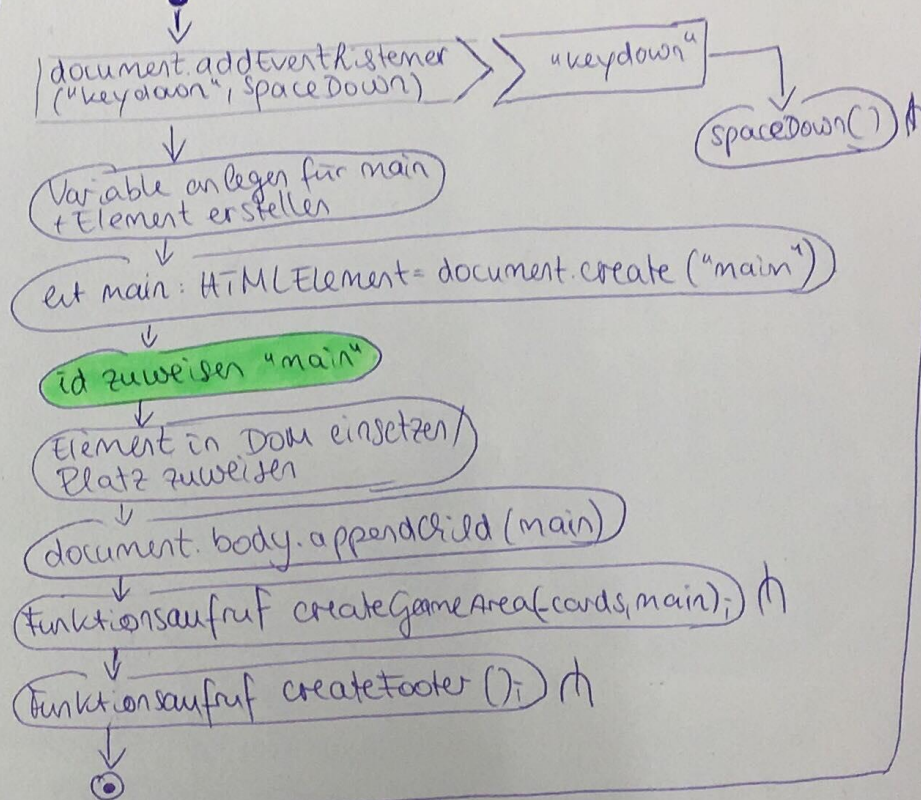 document.addEventListener
("keydown", spaceDown)
"keydown"
spaceDown()
Variable anlegen für main
+ Element erstellen
let main: HTMLElement= document.create ("main")
id zuweisen "main"
Element in DOM einsetzen/
Platz zuweisen
document.body.appendChild (main)
Funktionsaufruf createGameArea(_cards, main);
Funktionsaufruf createFooter ();